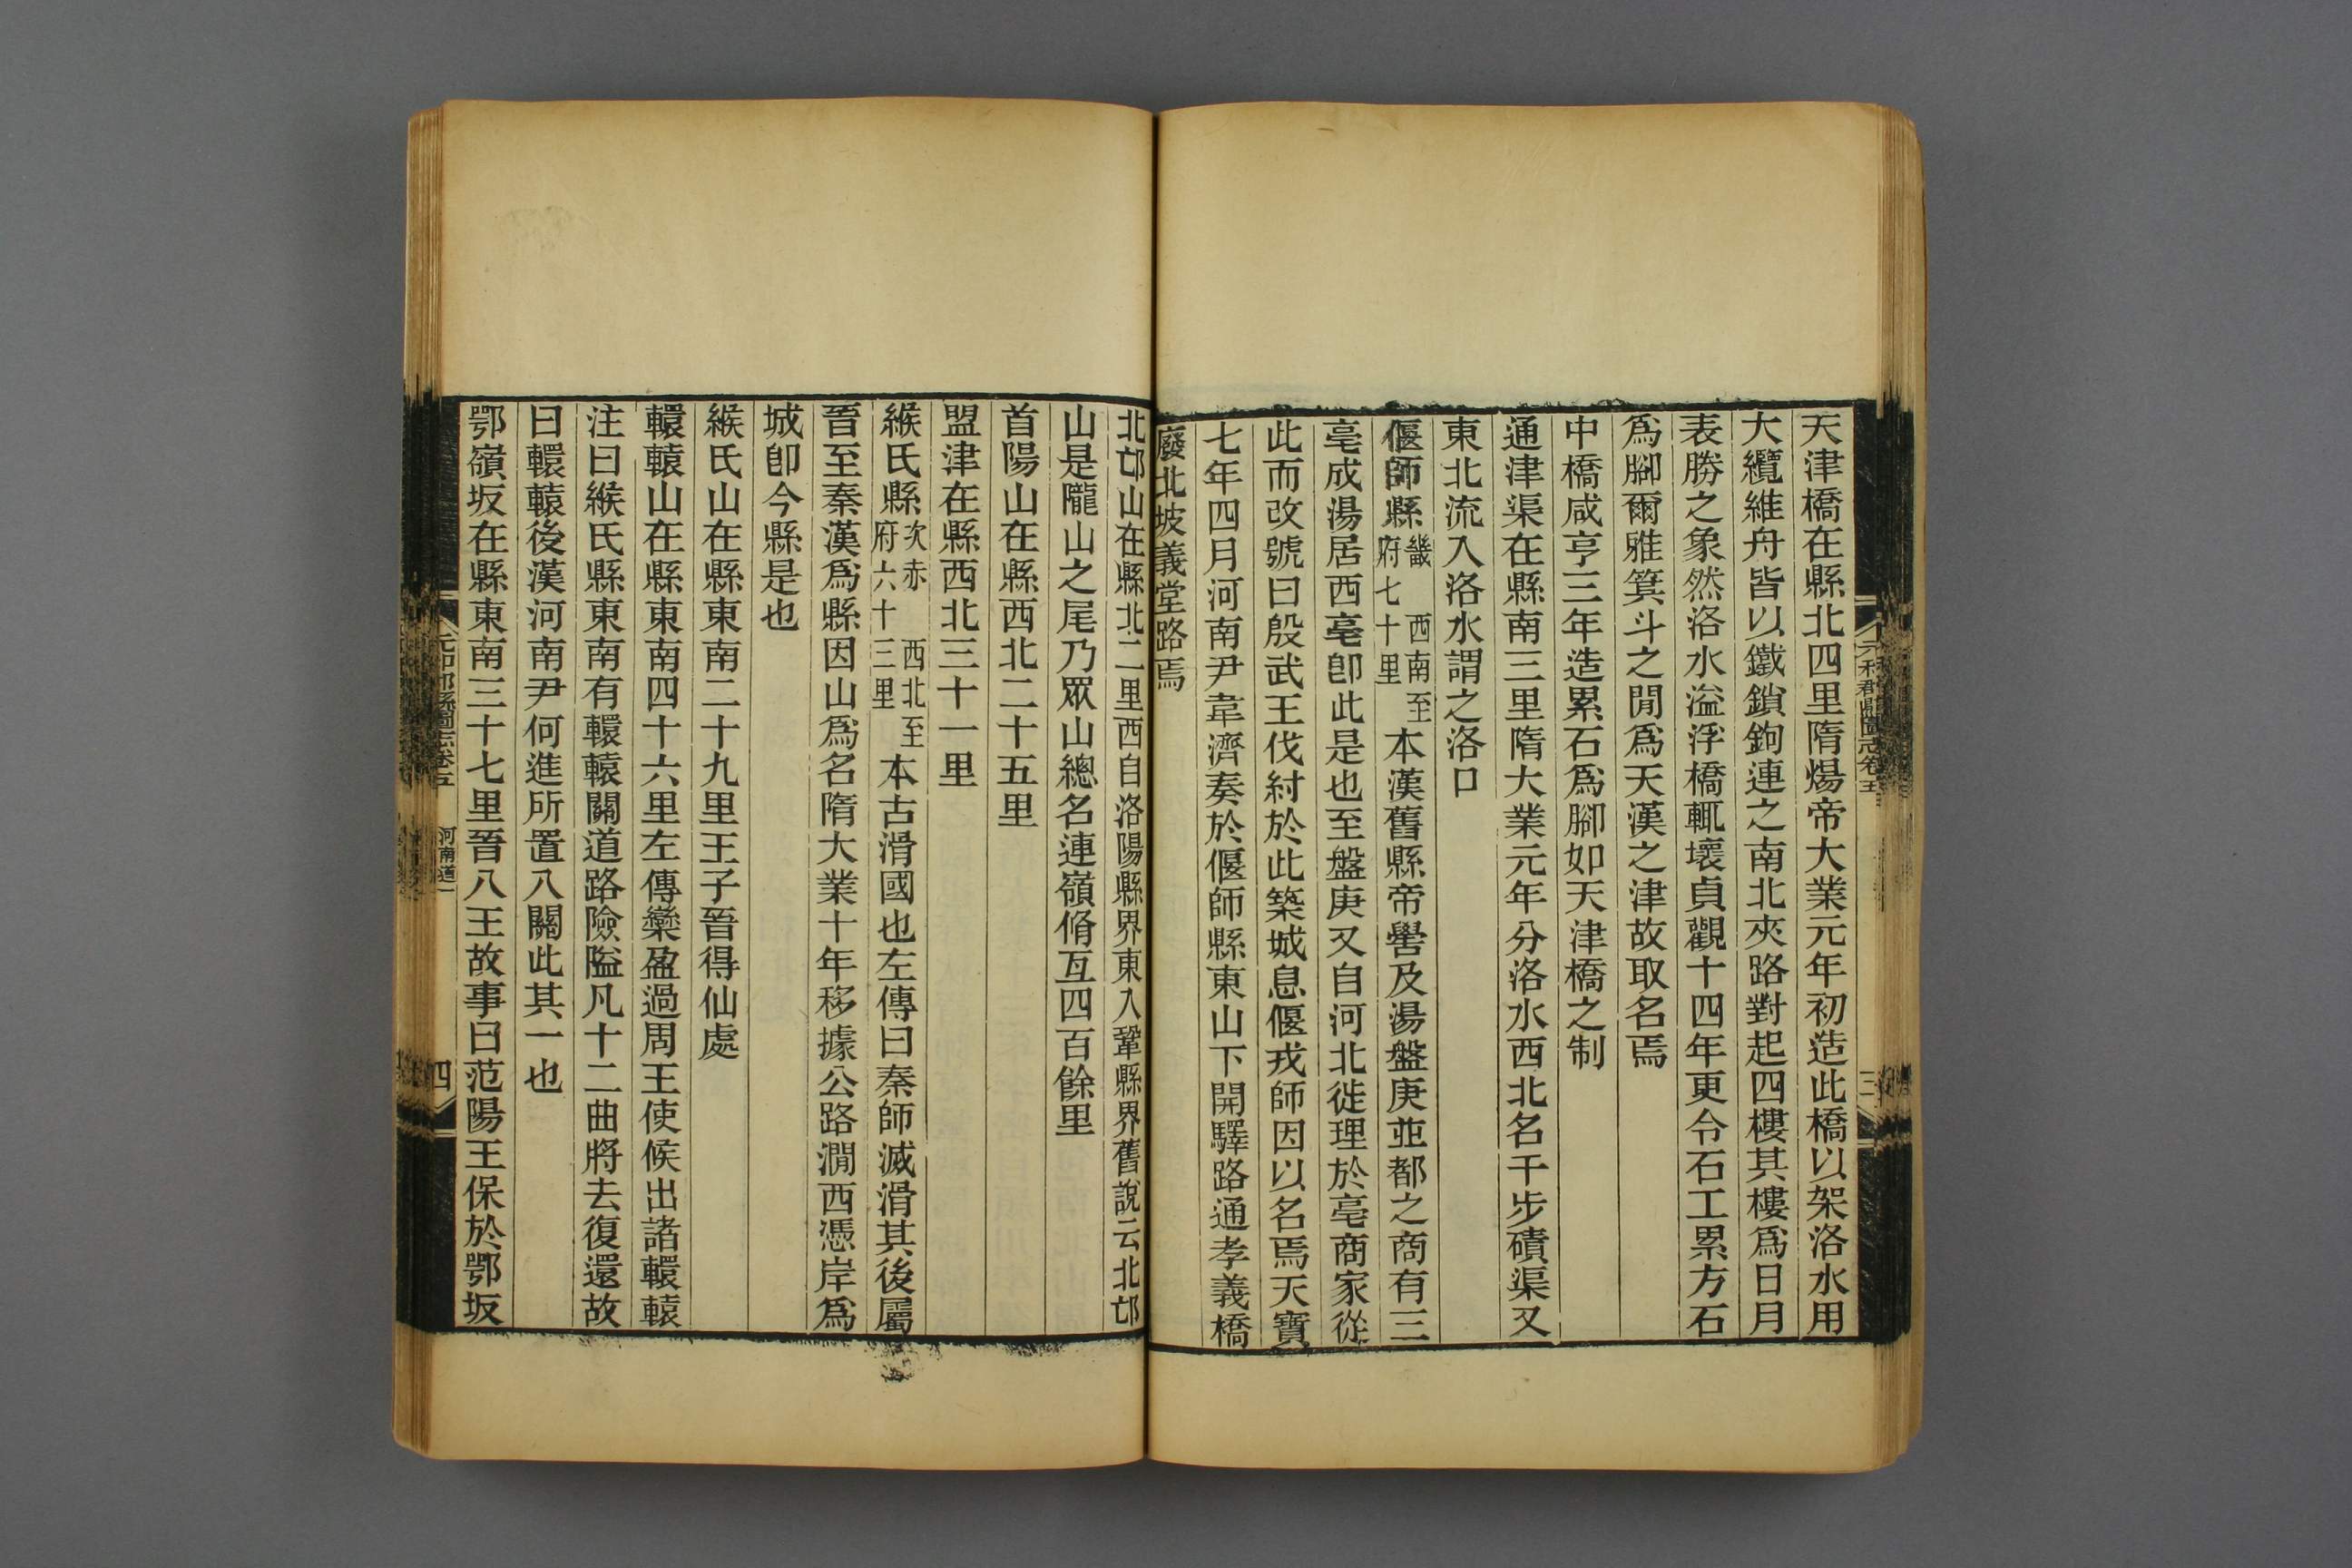 天津橋在縣北四里隋煬帝大業元年初造此橋以架洛水用
大纜維舟皆以鐵鎖鉤連之南北夾路對起四樓其樓爲日月
表勝之象然洛水溢浮橋輒壞貞觀十四年更令石工累方石
爲腳爾雅箕斗之閒爲天漢之津故取名焉
中橋咸亨三年造累石爲腳如天津橋之制
通津渠在縣南三里隋大業元年分洛水西北名千步磧渠又
東北流入洛水謂之洛口
偃師縣畿　西南至府七十里本漢舊縣帝嚳及湯盤庚並都之商有三
亳成湯居西亳卽此是也至盤庚又自河北徙理於亳商家從
此而改號曰殷武王伐紂於此築城息偃戎師因以名焉天寶
七年四月河南尹韋濟奏於偃師縣東山下開驛路通孝義橋
廢北坡義堂路焉
元和郡縣圖志卷五
三
北邙山在縣北二里西自洛陽縣界東入鞏縣界舊說云北邙
山是隴山之尾乃眾山總名連嶺脩亙四百餘里
首陽山在縣西北二十五里
盟津在縣西北三十一里
緱氏縣次赤　西北至府六十三里本古滑國也左傳曰秦師滅滑其後屬
晉至秦漢爲縣因山爲名隋大業十年移據公路澗西憑岸爲
城卽今縣是也
緱氏山在縣東南二十九里王子晉得仙處
轘轅山在縣東南四十六里左傳欒盈過周王使候出諸轘轅
注曰緱氏縣東南有轘轅關道路險隘凡十二曲將去復還故
曰轘轅後漢河南尹何進所置八關此其一也
鄂嶺坂在縣東南三十七里晉八王故事曰范陽王保於鄂坂
元和郡縣圖志卷五
河南道一
四